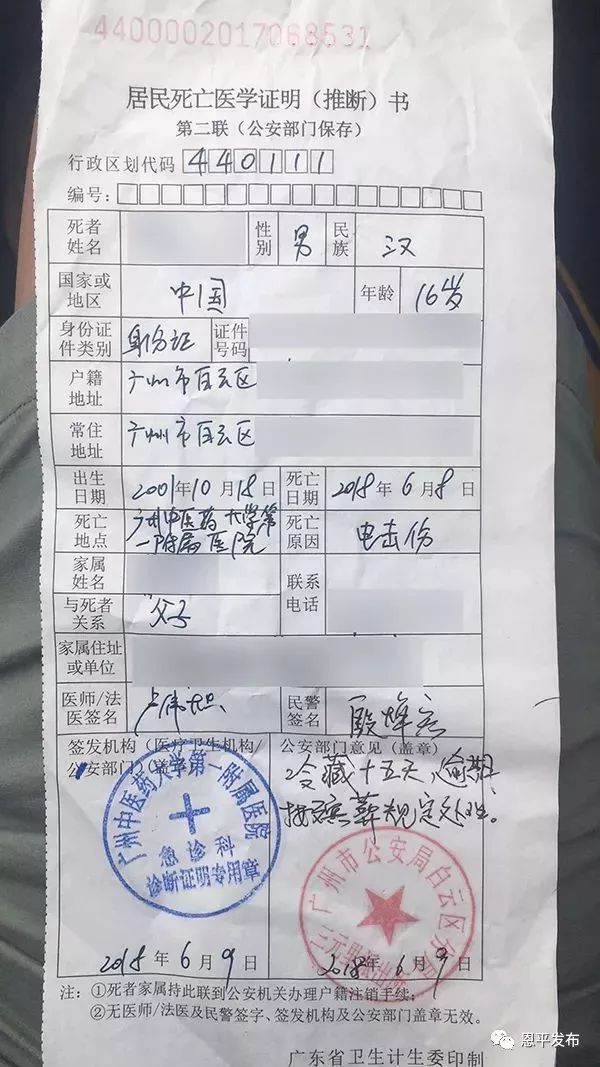 4400002017068531
居民死亡医学证明（推断）书
第二联（公安部门保存）
行政区划代码 440111
编号：
死者姓名 性别 男 民族 汉
国家或地区 中国 年龄 16岁
身份证件类别 身份证 证件号码
户籍地址 广州市白云区
常住地址 广州市白云区
出生日期 2001年10月18日 死亡日期 2018年6月8日
死亡地点 广州中医药大学第一附属医院 死亡原因 电击伤
家属姓名 联系电话
与死者关系 父子
家属住址或单位
医师/法医签名 民警签名
签发机构（医疗卫生机构/公安部门）（盖章） 公安部门意见（盖章）
冷藏十五天，逾期
按殡葬规定处理。
广州中医药大学第一附属医院
急诊科
诊断证明专用章
广州市公安局白云区分局
三元里派出所
2018年6月9日 2018年6月9日
注：①死者家属持此联到公安机关办理户籍注销手续；
②无医师/法医及民警签字、签发机构及公安部门盖章无效。
广东省卫生计生委印制
恩平发布